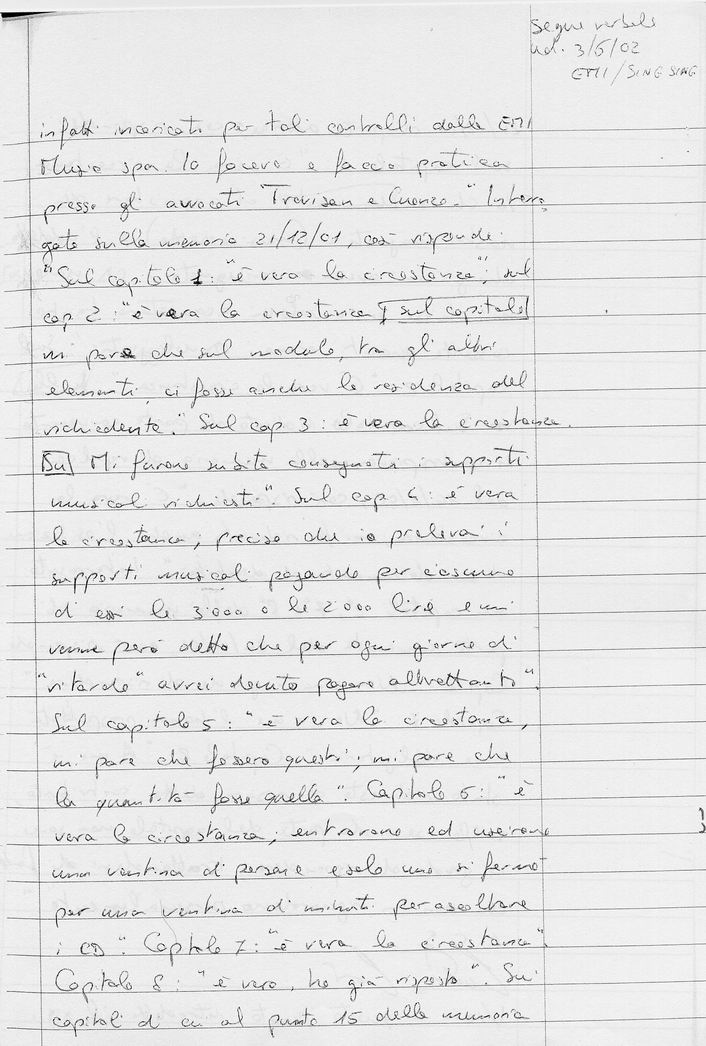 segue verbale
ud. 3/5/02
EMI / SING SING
infatti incaricati per tali controlli dalla EMI
Music spa. Io facevo e faccio pratica
presso gli avvocati Trevisan e Cuonzo." Interro
gato sulla memoria 21/12/01, così risponde:
"Sul capitolo 1: "è vera la circostanza"; sul
cap 2: "è vera la circostanza sul capitolo
mi pare che sul modulo, tra gli altri
elementi, ci fosse anche la residenza del
richiedente." Sul cap. 3: è vera la circostanza.
Su Mi furono subito consegnati i supporti
musicali richiesti". Sul cap. 4: è vera
la circostanza; preciso che io prelevai i
supporti musicali pagando per ciascuno
di essi le 3.000 o le 2.000 lire e mi
venne però detto che per ogni giorno di
"ritardo" avrei dovuto pagare altrettanto".
Sul capitolo 5: "è vera la circostanza,
mi pare che fossero questi; mi pare che
la quantità fosse quella". Capitolo 6: "è
vera la circostanza; entrarono ed uscirono
una ventina di persone e solo uno si fermò
per una ventina di minuti per ascoltare
i CD". Capitolo 7: "è vera la circostanza".
Capitolo 8: "è vero, ho già risposto". Sui
capitoli di cui al punto 15 della memoria